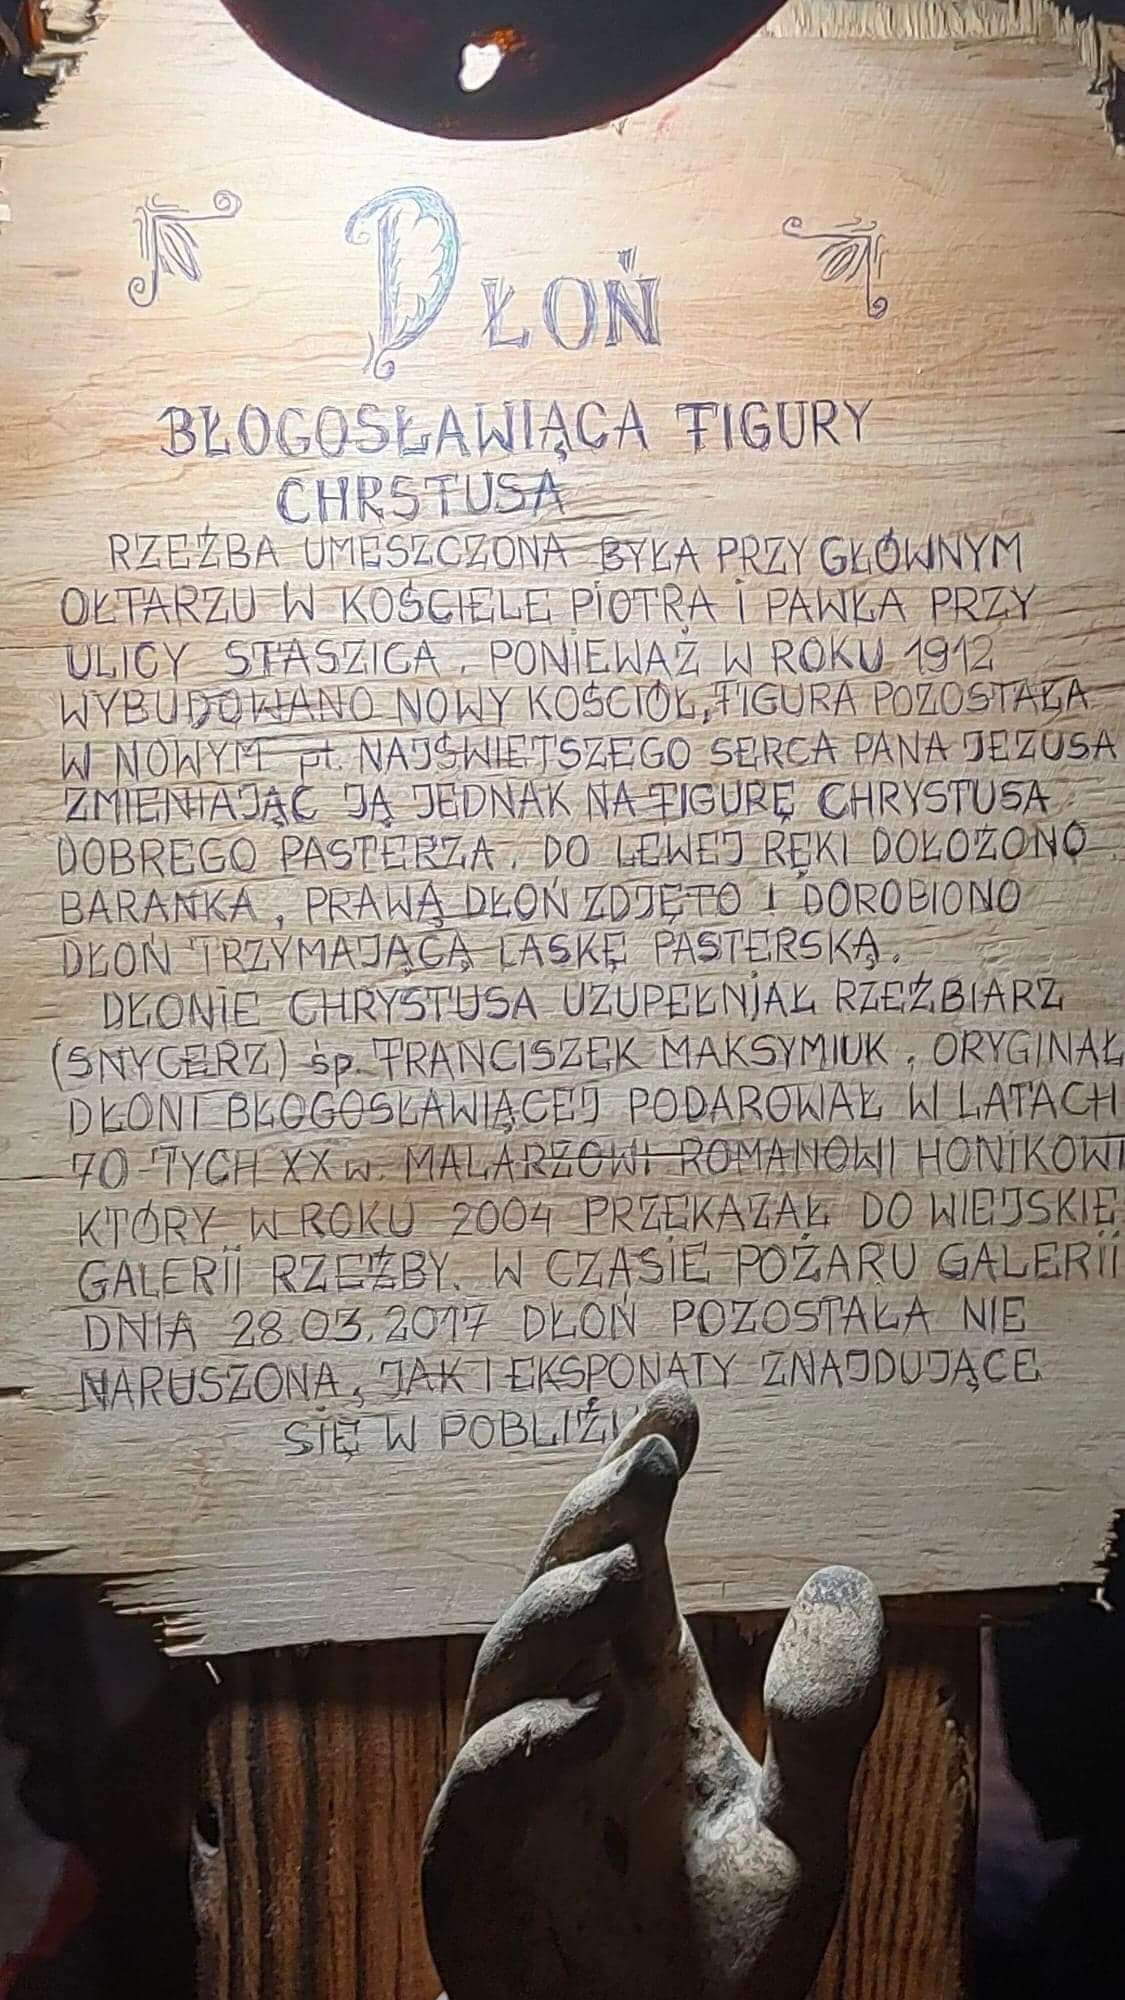 DŁOŃ
BŁOGOSŁAWIĄCA FIGURY
CHRSTUSA
RZEŹBA UMESZCZONA BYŁA PRZY GŁÓWNYM
OŁTARZU W KOŚCIELE PIOTRA i PAWŁA PRZY
ULICY STASZICA. PONIEWAŻ W ROKU 1912
WYBUDOWANO NOWY KOŚCIÓŁ, FIGURA POZOSTAŁA
W NOWYM pt. NAJŚWIĘTSZEGO SERCA PANA JEZUSA
ZMIENIAJĄC JĄ JEDNAK NA FIGURĘ CHRYSTUSA
DOBREGO PASTERZA. DO LEWEJ RĘKI DOŁOŻONO
BARANKA, PRAWĄ DŁOŃ ZDJĘTO I DOROBIONO
DŁOŃ TRZYMAJĄCĄ LASKĘ PASTERSKĄ.
DŁONIE CHRYSTUSA UZUPEŁNJAŁ RZEŹBIARZ
(SNYCERZ) śp. FRANCISZEK MAKSYMIUK, ORYGINAŁ
DŁONI BŁOGOSŁAWIĄCEJ PODAROWAŁ W LATACH
70-TYCH XX w. MALARZOWI ROMANOWI HONIKOWI
KTÓRY W ROKU 2004 PRZEKAZAŁ DO WIEJSKIE
GALERII RZEŹBY. W CZASIE POŻARU GALERII
DNIA 28.03.2017 DŁOŃ POZOSTAŁA NIE
NARUSZONA, JAK I EKSPONATY ZNAJDUJĄCE
SIĘ W POBLIŻU